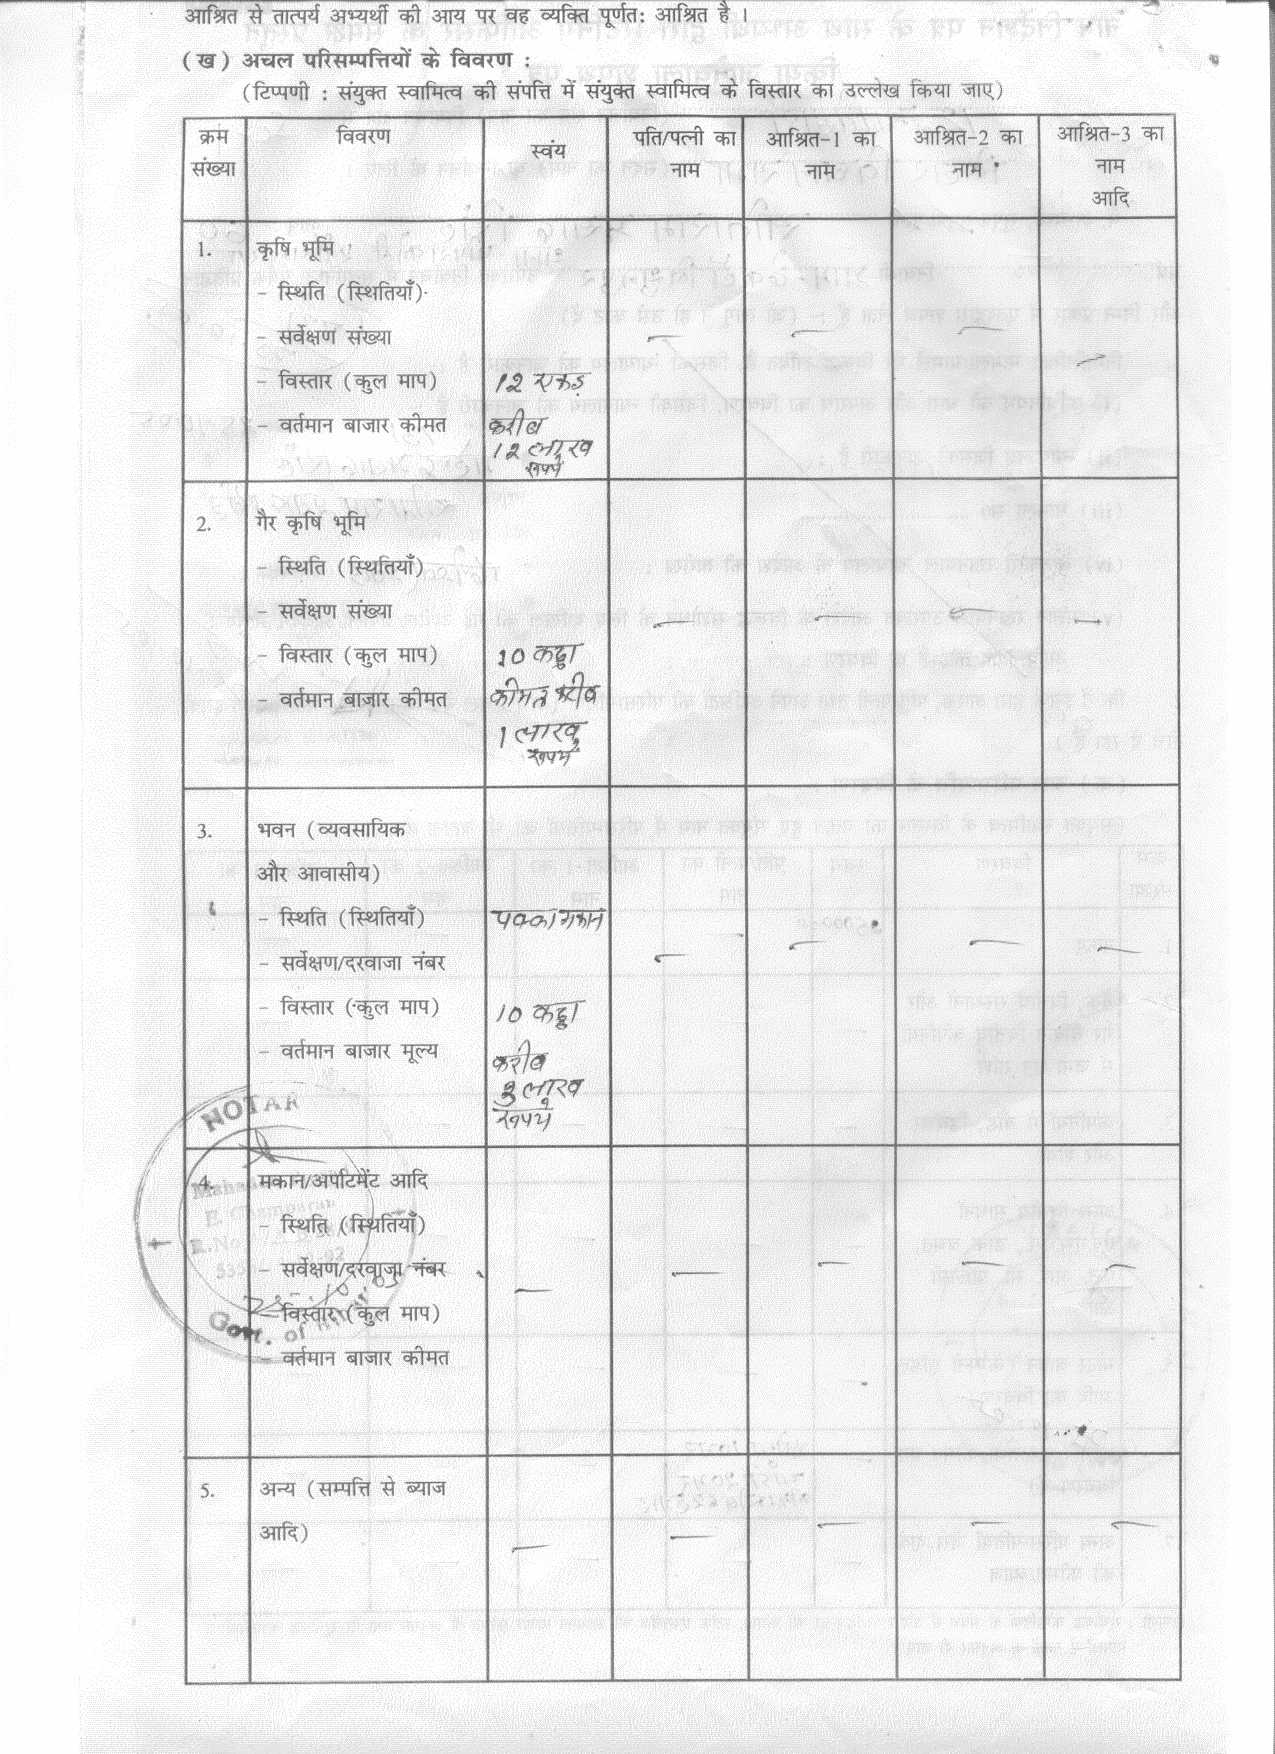 आश्रित से तात्पर्य अभ्यर्थी की आय पर वह व्यक्ति पूर्णत: आश्रित है ।
(ख) अचल परिसम्पत्तियों के विवरण :
(टिप्पणी : संयुक्त स्वामित्व की संपत्ति में संयुक्त स्वामित्व के विस्तार का उल्लेख किया जाए)
क्रम संख्या विवरण स्वंय पति/पत्नी का नाम आश्रित-1 का नाम आश्रित-2 का नाम आश्रित-3 का नाम आदि
1. कृषि भूमि :
- स्थिति (स्थितियाँ)
- सर्वेक्षण संख्या — — — —
- विस्तार (कुल माप) 12 एकड़
- वर्तमान बाजार कीमत करीब
12 लाख
रूपये
2. गैर कृषि भूमि
- स्थिति (स्थितियाँ)
- सर्वेक्षण संख्या — — — —
- विस्तार (कुल माप) 10 कट्ठा
- वर्तमान बाजार कीमत कीमत करीब
1 लाख
रूपये
3. भवन (व्यवसायिक
और आवासीय)
- स्थिति (स्थितियाँ) पक्का मकान
- सर्वेक्षण/दरवाजा नंबर — — — —
- विस्तार (कुल माप) 10 कट्ठा
- वर्तमान बाजार मूल्य करीब
3 लाख
रूपये
NOTAR
4. मकान/अपार्टमेंट आदि
- स्थिति (स्थितियाँ)
- सर्वेक्षण/दरवाजा नंबर — — — — —
- विस्तार (कुल माप)
Govt. of
- वर्तमान बाजार कीमत
5. अन्य (सम्पत्ति से ब्याज
आदि) — — — — —